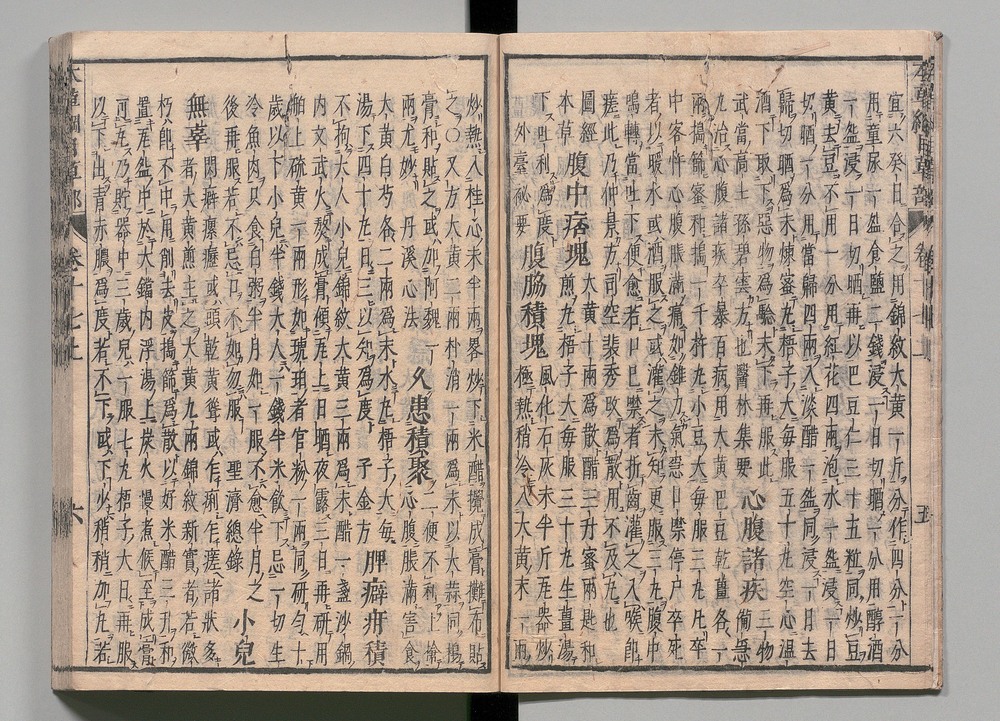 宜六癸日合之用錦紋大黃一斤分作四分一分
用童尿一盌食鹽二錢浸一日切晒一分用醇酒
一盌浸一日切晒再以巴豆仁三十五粒同炒豆
黃去豆不用一分用紅花四兩泡水一盌浸一日
切晒一分用當歸四兩入淡醋一盌同浸一日去
歸切晒爲末煉蜜丸梧子大每服五十丸空心溫
酒下取下惡物爲驗未下再服此
武當高士孫碧雲方也醫林集要 心腹諸疾 三物備急
丸治心腹諸疾卒暴百病用大黃巴豆乾薑各一
兩搗篩蜜和搗一千杵丸小豆大每服三丸凡卒
中客忤心腹脹滿痛如錐刀氣急口禁停尸卒死
者以暖水或酒服之或灌之未知更服三丸腹中
鳴轉當吐下便愈若口已禁者折齒灌之入喉卽
瘥此乃仲景方司空裴秀改爲散用不及丸也
圖經本草 腹中痞塊 大黃十兩爲散醋三升蜜兩匙和
煎丸梧子大每服三十丸生薑湯
下吐利爲度
外臺祕要 腹脇積塊 風化石灰末半斤瓦器炒
極熱稍冷入大黃末一兩
炒熱入桂心末半兩畧炒下米醋攪成膏攤布貼
之〇又方大黃二兩朴消一兩爲末以大蒜同搗
膏和貼之或加阿魏一
兩尤妙 丹溪心法 久患積聚 二便不利上搶
心腹脹滿害食
大黃白芍各二兩爲末水丸梧子大每
湯下四十丸日三以知爲度 子金方 脾癖疳積
不拘大人小兒錦紋大黃三兩爲末醋一盞沙鍋
內文武火熬成膏傾瓦上日晒夜露三日再研用
舶上硫黃一兩形如琥珀者官粉一兩同研勻十
歲以下小兒半錢大人一錢半米飲下忌一切生
冷魚肉只食白粥半月如一服不愈半月之
後再服若不忌口不如勿服 聖濟總錄 小兒
無辜 閃癖瘰癧或頭乾黃聳或乍痢乍瘥諸狀多
者大黃煎主之大黃九兩錦紋新實者若微
朽卽不中用削去皮搗篩爲散以好米醋三升和
置瓦盌中於大鐺內浮湯上炭火慢煮候至成膏
可丸乃貯器中三歲兒一服七丸梧子大日再服
以下出青赤膿爲度若不下或下少稍稍加丸若